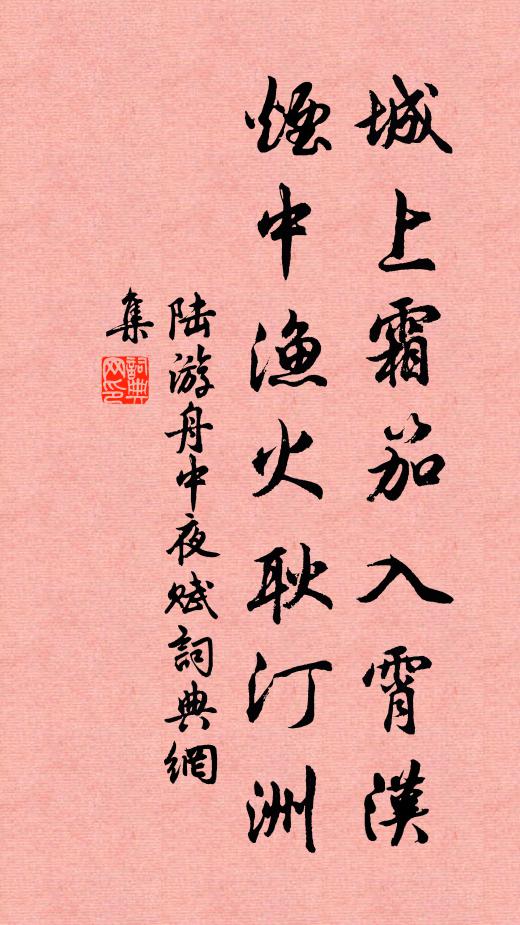 城上霜笳入霄漢
煙中漁火耿汀洲
陆游舟中夜赋詞典網
集
詞典
网印